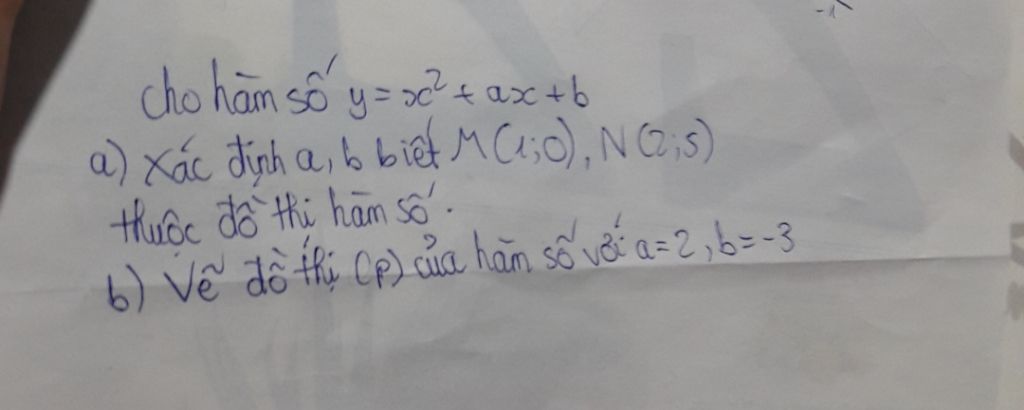 -1
Cho hàm số y = x² + ax + b
a) Xác định a, b biết M(1;0), N(2;5)
thuộc đồ thị hàm số.
b) Vẽ đồ thị (P) của hàm số với a=2, b=-3